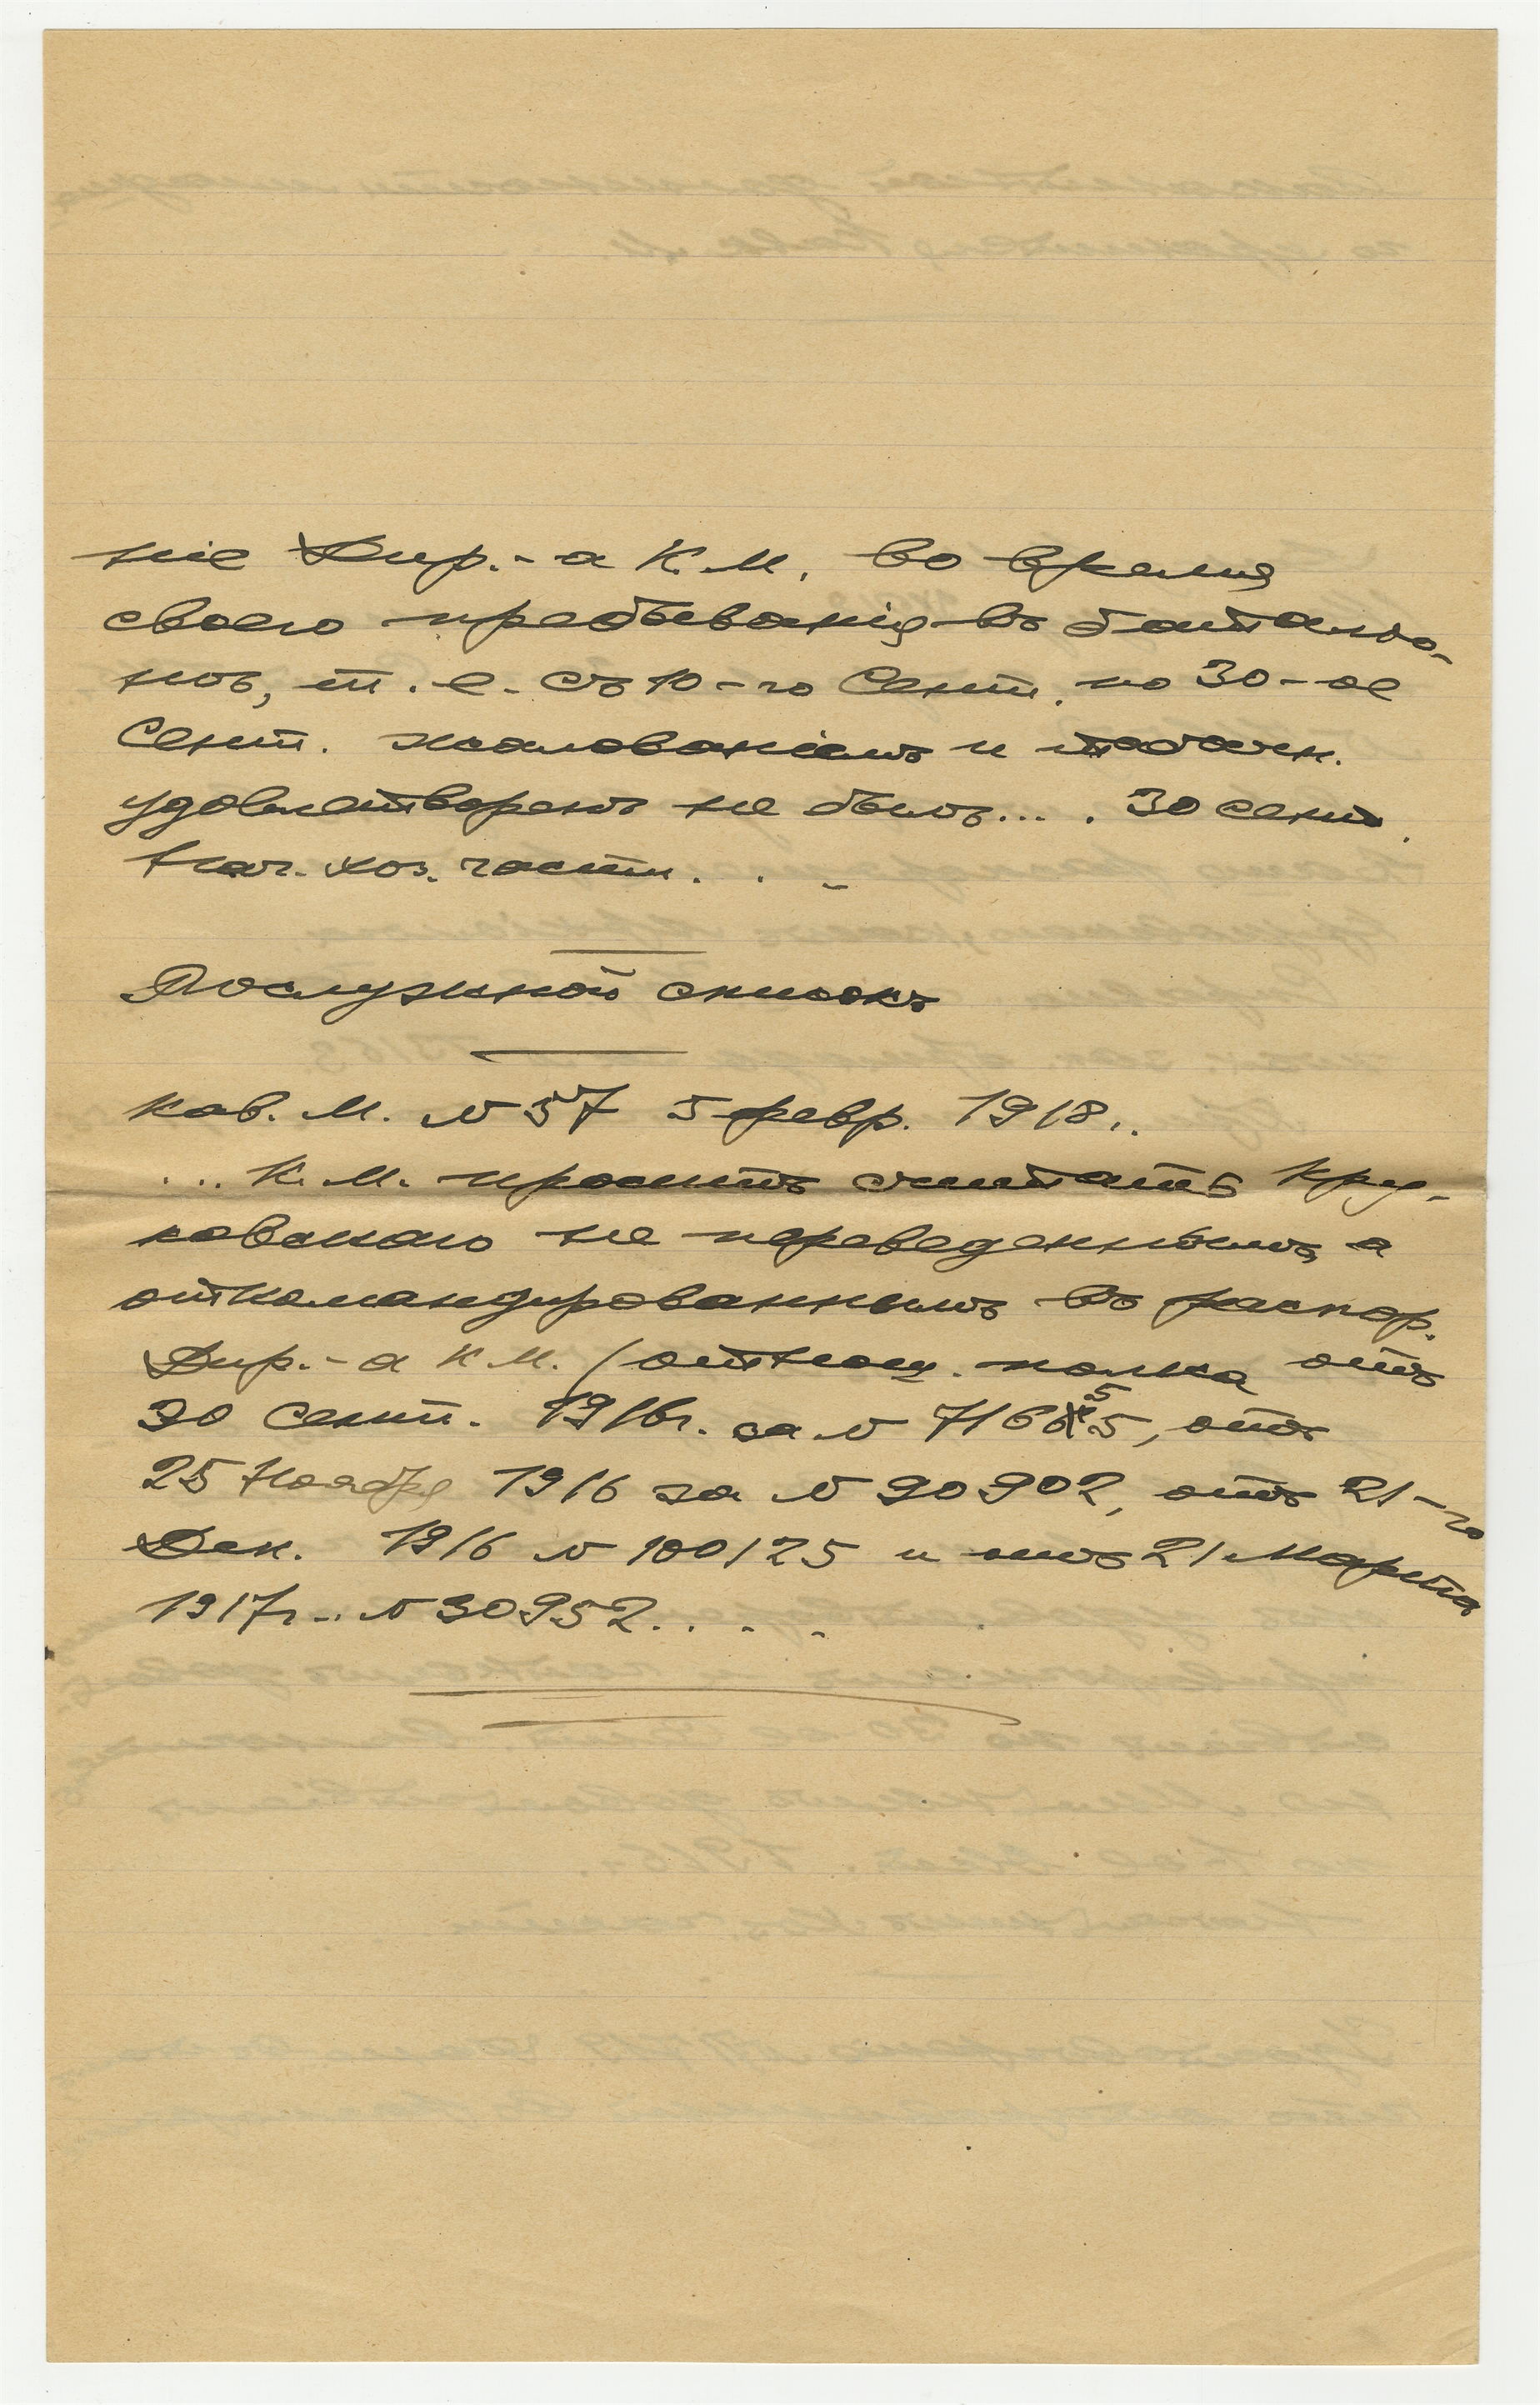 ніе Дир.-а К. М. во время
своего пребыванія въ баталіо-
нѣ, т. е. съ 10-го Сент. по 30-ое
Сент. жалованіемъ и табачн.
удовлетворенъ не былъ... . 30 сент.
Нач. хоз. части. . .
Послужной списокъ
Кав. М. № 57 5 февр. 1918..
... К. М. проситъ считать Кру-
ковскаго не переведеннымъ, а
откомандированнымъ въ распор.
Дир.-а К. М. (отнош. полка отъ
30 Сент. 1916г. за № 71655, отъ
25 Ноября 1916 за № 90902, отъ 21-го
Дек. 1916 № 100125 и отъ 21 Марта
1917г... № 30952. . . .